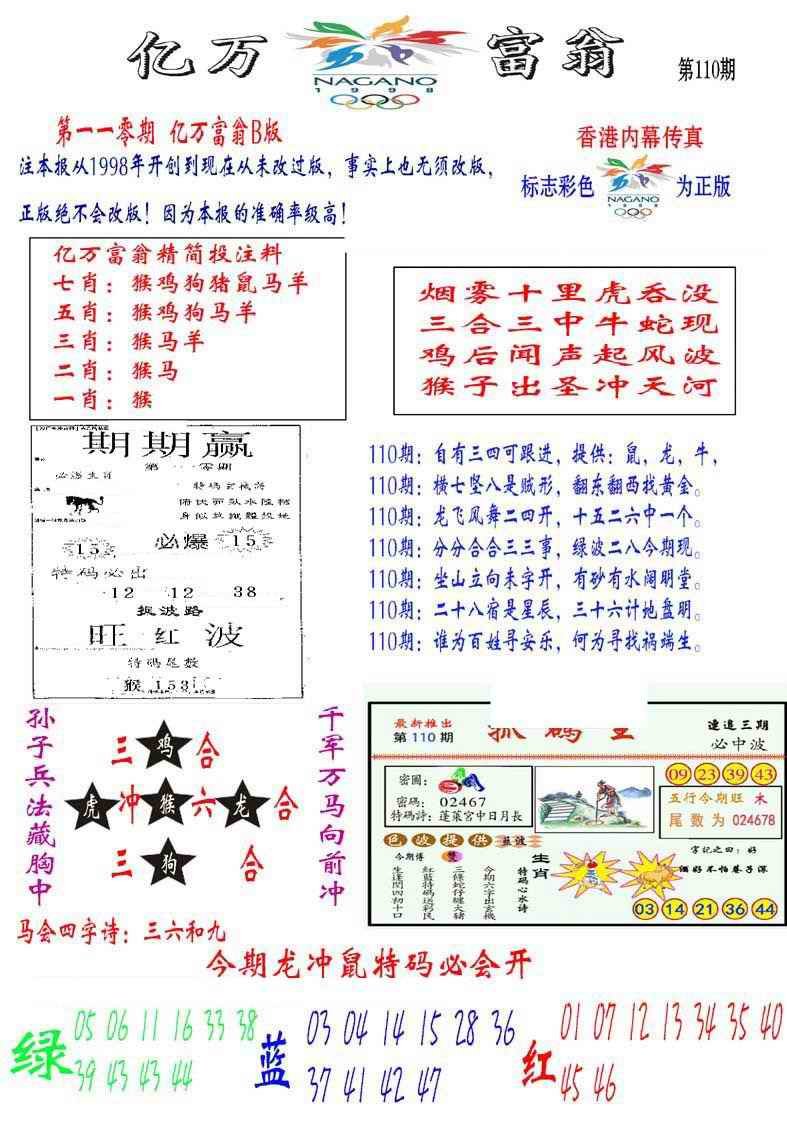 亿万
NAGANO
1998
富翁
第110期
第一一零期 亿万富翁B版
注本报从1998年开创到现在从未改过版，事实上也无须改版，
正版绝不会改版！因为本报的准确率级高！
香港内幕传真
标志彩色
NAGANO
1998
为正版
亿万富翁精简投注料
七肖：猴鸡狗猪鼠马羊
五肖：猴鸡狗马羊
三肖：猴马羊
二肖：猴马
一肖：猴
烟雾十里虎吞没
三合三中牛蛇现
鸡后闻声起风波
猴子出圣冲天河
期期赢
第一一零期
必爆
15
15
特码必出
12 12 38
捉波路
旺红波
特码尾数
猴 153
110期：自有三四可跟进，提供：鼠，龙，牛，
110期：横七坚八是贼形，翻东翻西找黄金。
110期：龙飞风舞二四开，十五二六中一个。
110期：分分合合三三事，绿波二八今期现。
110期：坐山立向未字开，有砂有水阔明堂。
110期：二十八宿是星辰，三十六计地盘明。
110期：谁为百姓寻安乐，何为寻找祸端生。
孙子兵法藏胸中
三 鸡 合
虎 冲 猴 六 龙 合
三 狗 合
千军万马向前冲
马会四字诗：三六和九
最新推出
第110期
连追三期
必中波
密圖：
密碼：02467
特碼詩：蓬萊宮中日月長
09 23 39 43
五行今期旺 木
尾数为 024678
色波提供
今期博
生肖
特码心水诗
今期六字出玄機
三條蛇仔纏大豬
紅藍特碼送彩民
生逢閏四初十口
字记之曰：好
酒好不怕巷子深
03 14 21 36 44
今期龙冲鼠特码必会开
绿
05 06 11 16 33 38
39 43 43 44
蓝
03 04 14 15 28 36
37 41 42 47
红
01 07 12 13 34 35 40
45 46